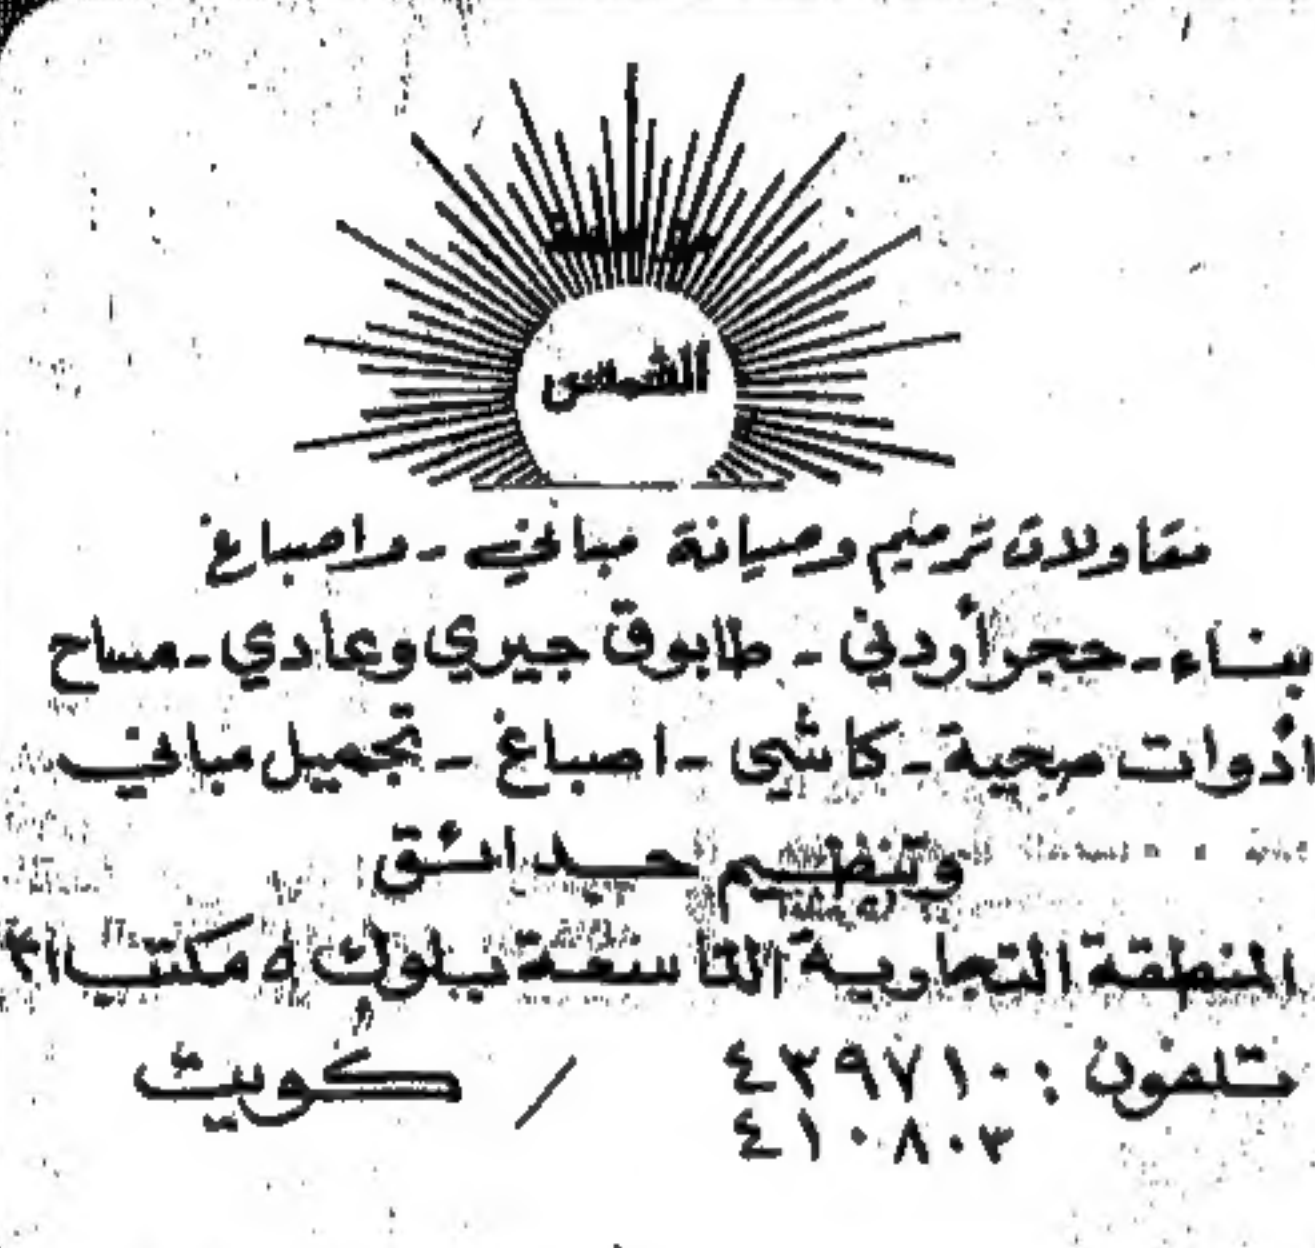 مؤسسة
الشمس
مقاولات ترميم وصيانة مباني - واصباغ
بناء - حجر أردني - طابوق جيري وعادي - مساح
أدوات صحية - كاشي - اصباغ - تجميل مباني
وتنظيم حدائق
المنطقة التجارية التاسعة بلوك ٥ مكتب
تلفون : ٤٣٩٧١٠ / كويت
٤١٠٨٠٣